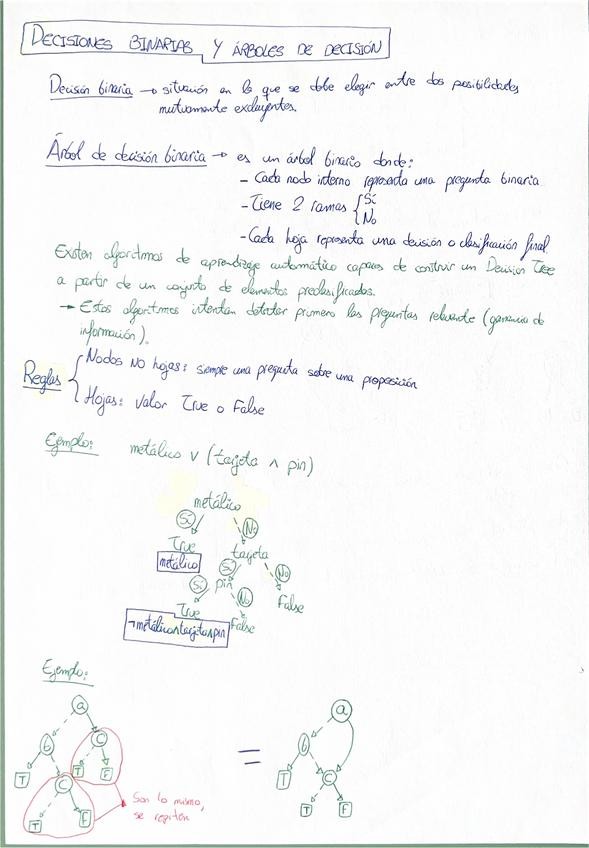 DECISIONES BINARIAS Y ÁRBOLES DE DECISIÓN
Decisión binaria → situación en la que se debe elegir entre dos posibilidades
mutuamente excluyentes.
Árbol de decisión binaria → es un árbol binario donde:
- Cada nodo interno representa una pregunta binaria
- Tiene 2 ramas { Sí
No
- Cada hoja representa una decisión o clasificación final.
Existen algoritmos de aprendizaje automático capaces de construir un Decision Tree
a partir de un conjunto de elementos preclasificados.
→ Estos algoritmos intentan detectar primero las preguntas relevante (ganancia de
información).
Reglas { Nodos NO hojas: siempre una pregunta sobre una proposición
Hojas: valor True o False
Ejemplo: metálico ∨ (tarjeta ∧ pin)
metálico
Sí No
True tarjeta
metálico Sí No
pin
True No False
¬metálico∧tarjeta∧pin False
Ejemplo:
a a
b c = b
T T F T c
c T F
T F
Son lo mismo,
se repiten